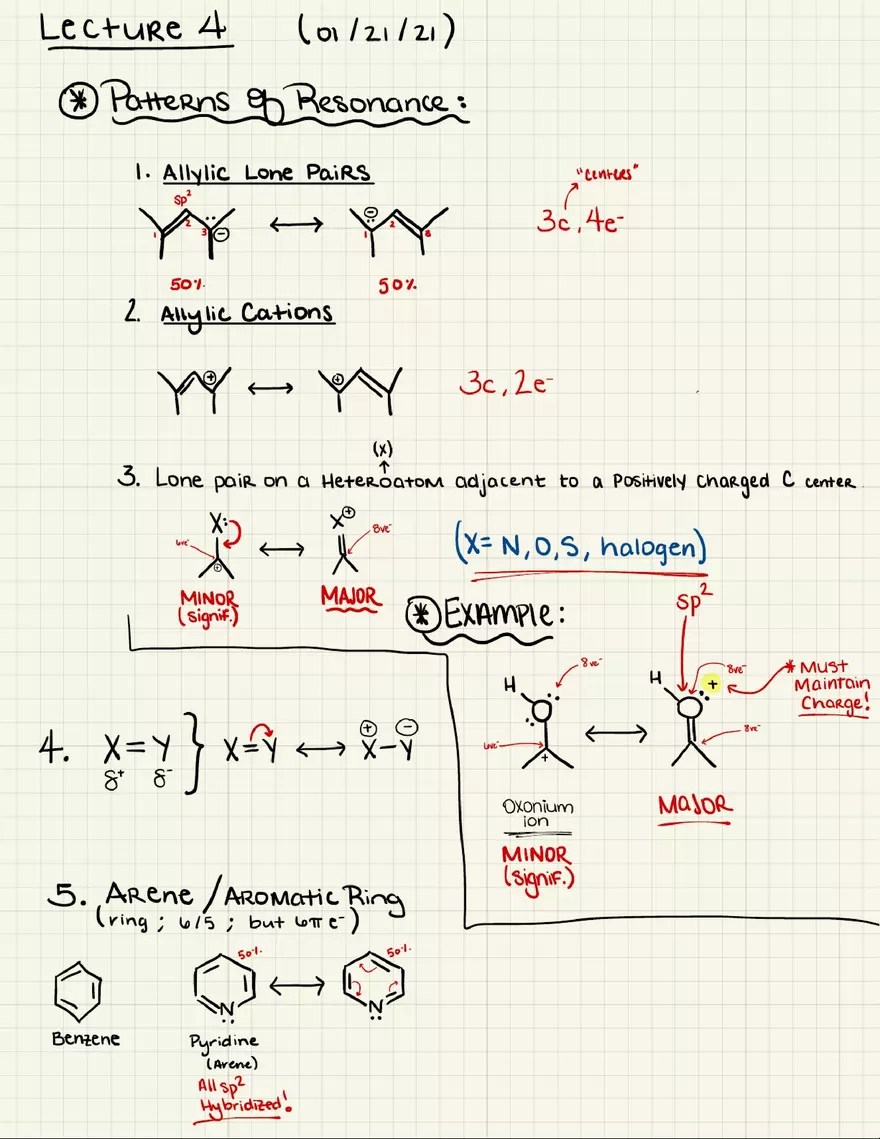 Lecture 4 (01/21/21)
* Patterns of Resonance:
1. Allylic Lone Pairs
"centers"
sp²
1 2 3 ⊖ ⟷ ⊖ 1 2 3
3c, 4e⁻
50% 50%
2. Allylic Cations
⊕ ⟷ ⊕ 3c, 2e⁻
(x)
3. Lone pair on a Heteroatom adjacent to a Positively Charged C center
X: ⟷ X⊕
6ve⁻ 8ve⁻
⊕
(X = N, O, S, halogen)
MINOR MAJOR
(signif.)
* Example:
sp²
H O 8ve⁻ ⟷ H O + 8ve⁻
* Must
Maintain
Charge!
6ve⁻ + 8ve⁻
Oxonium
ion
MINOR
(signif.)
MAJOR
4. X=Y } X=Y ⟷ X⊕-Y⊖
δ⁺ δ⁻
5. Arene / Aromatic Ring
(ring; 6/5; but 6π e⁻)
50% 50%
N ⟷ N
Benzene
Pyridine
(Arene)
All sp²
Hybridized!